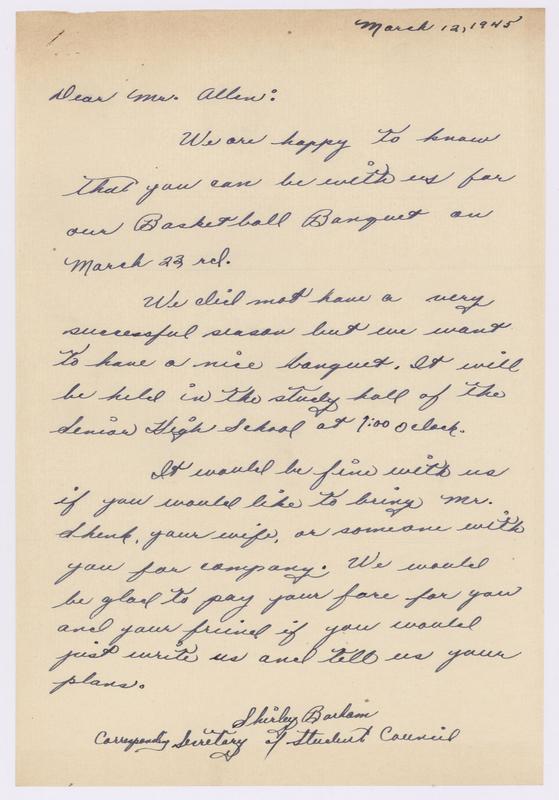 March 12, 1945
Dear Mr. Allen:
We are happy to know
that you can be with us for
our Basketball Banquet on
March 23, rd.
We did not have a very
successful season but we want
to have a nice banquet. It will
be held in the study hall of the
Senior High School at 7:00 o'clock.
It would be fine with us
if you would like to bring Mr.
Shenk, your wife, or someone with
you for company. We would
be glad to pay your fare for you
and your friend if you would
just write us and tell us your
plans.
Shirley Barham
Corresponding Secretary of Student Council